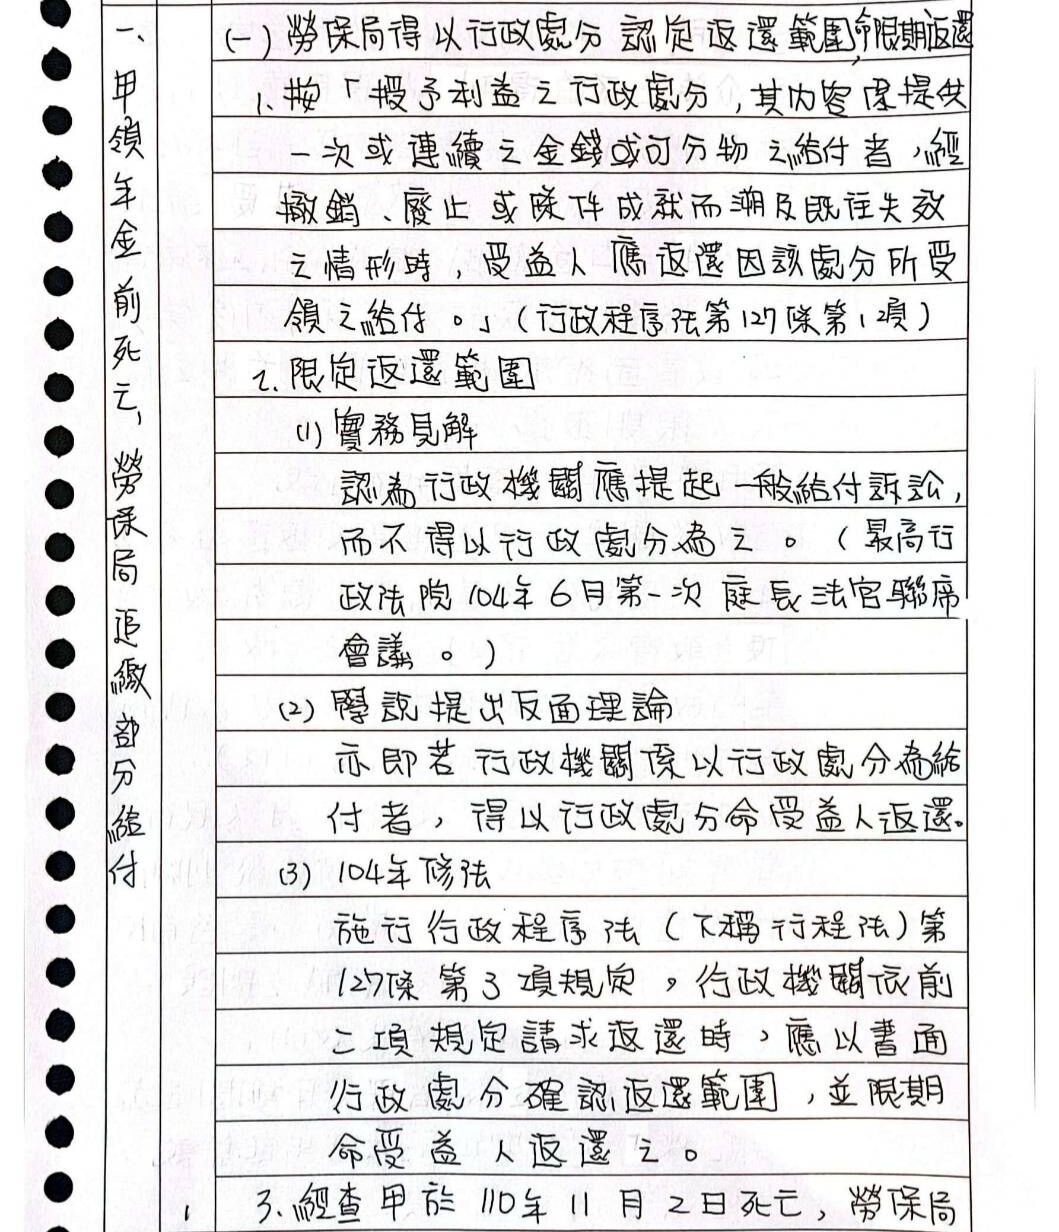 一、甲領年金前死亡，勞保局追繳部分給付
(一) 勞保局得以行政處分認定返還範圍，命限期返還
1、按「授予利益之行政處分，其內容係提供
一次或連續之金錢或可分物之給付者，經
撤銷、廢止或條件成就而溯及既往失效
之情形時，受益人應返還因該處分所受
領之給付。」（行政程序法第127條第1項）
2、限定返還範圍
(1) 實務見解
認為行政機關應提起一般給付訴訟，
而不得以行政處分為之。（最高行
政法院104年6月第一次庭長法官聯席
會議。）
(2) 學說提出反面理論
亦即若行政機關係以行政處分為給
付者，得以行政處分命受益人返還。
(3) 104年修法
施行行政程序法（下稱行程法）第
127條第3項規定，行政機關依前
二項規定請求返還時，應以書面
行政處分確認返還範圍，並限期
命受益人返還之。
3、經查甲於110年11月2日死亡，勞保局